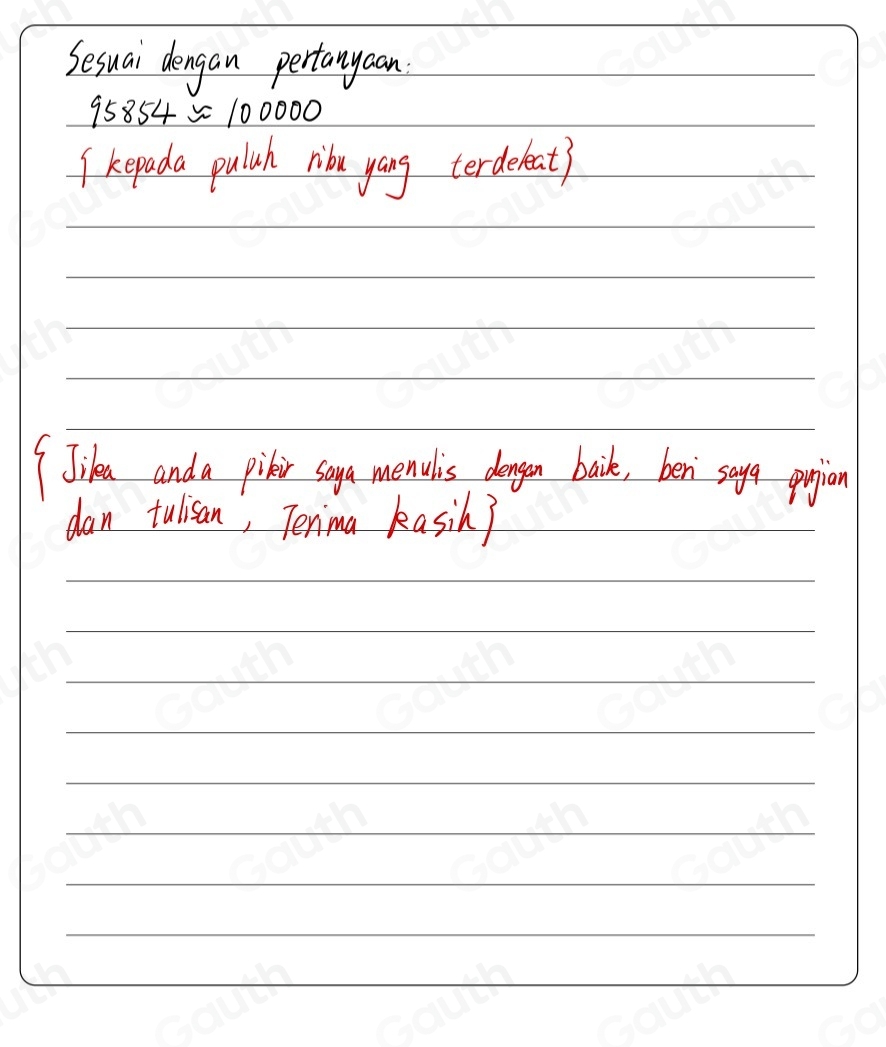 Sesuai dengan pertanyaan:
95854 ≈ 100000
{kepada puluh ribu yang terdekat}
{Jika anda pikir saya menulis dengan baik, beri saya pujian
dan tulisan, Terima kasih}